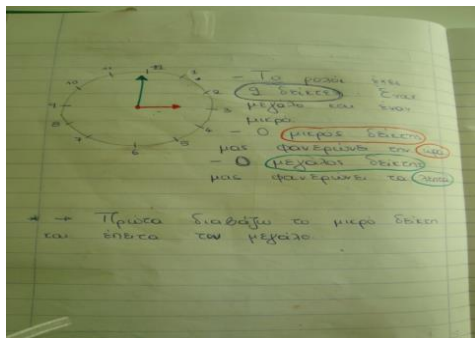 12
11
1
10
2
9
3
8
4
7
5
6
- Το ρολόι έχει
2 δείκτες. Έναν
μεγάλο και έναν
μικρό.
- Ο μικρός δείκτης
μας φανερώνει την ώρα
- Ο μεγάλος δείκτης
μας φανερώνει τα λεπτά
Πρώτα διαβάζω το μικρό δείκτη
και έπειτα τον μεγάλο.